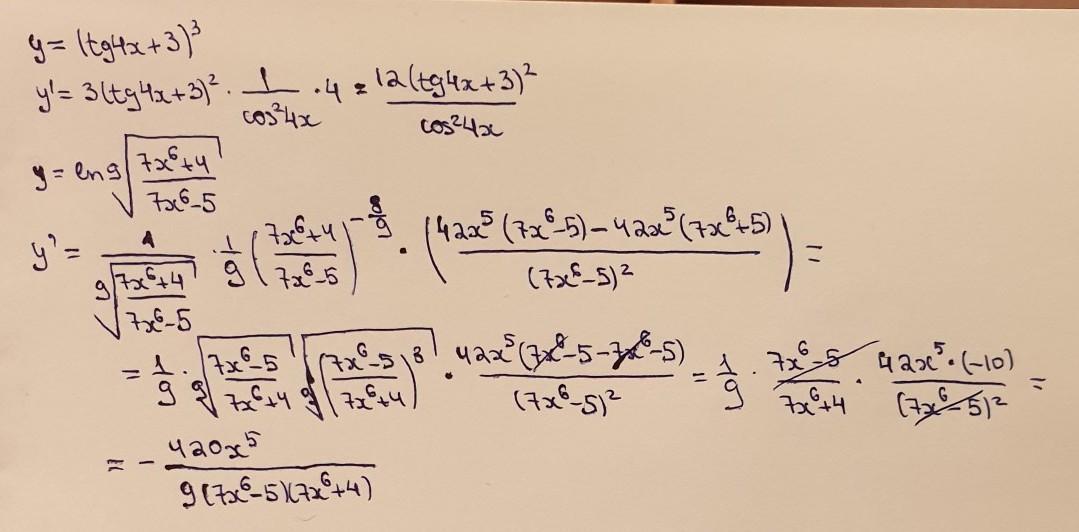 y = (tg4x+3)³
y' = 3(tg4x+3)² · 1/cos²4x · 4 = 12(tg4x+3)²/cos²4x
y = ln ⁹√((7x⁶+4)/(7x⁶-5))
y' = 1/⁹√((7x⁶+4)/(7x⁶-5)) · 1/9 ((7x⁶+4)/(7x⁶-5))^(-8/9) · ((42x⁵(7x⁶-5)-42x⁵(7x⁶+5))/(7x⁶-5)²) =
= 1/9 · ⁹√((7x⁶-5)/(7x⁶+4)) ⁹√((7x⁶-5)/(7x⁶+4))⁸ · 42x⁵(7x⁶-5-7x⁶-5)/(7x⁶-5)² = 1/9 · (7x⁶-5)/(7x⁶+4) · 42x⁵·(-10)/(7x⁶-5)² =
= - 420x⁵/(9(7x⁶-5)(7x⁶+4))